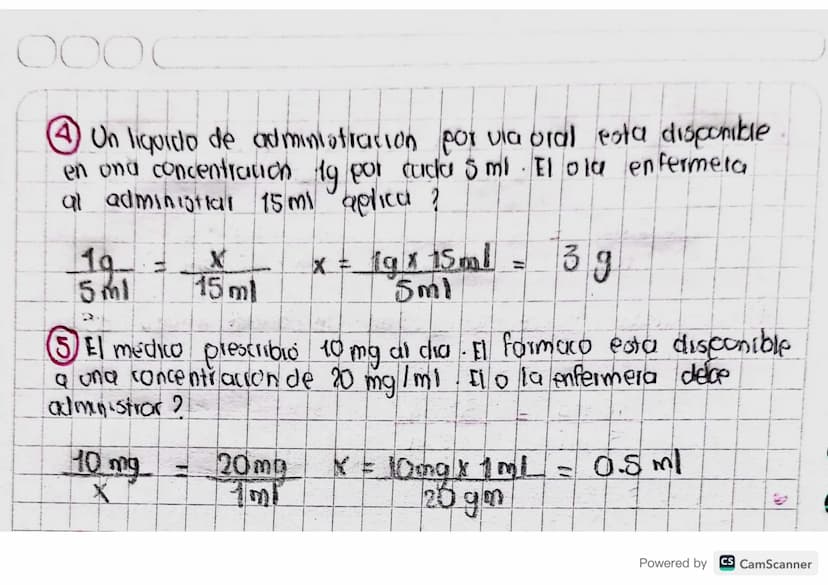 4 Un liquido de administración por via oral esta disponible
en una concentración 1g por cada 5 ml. El o la enfermera
al administrar 15 ml aplica?
1g/5 ml = x/15 ml x = 1g x 15 ml/5 ml = 3 g
5 El médico prescribió 10 mg al dia. El farmaco esta disponible
a una concentración de 20 mg/ml. El o la enfermera debe
administrar?
10 mg/x = 20 mg/1 ml x = 10 mg x 1 ml/20 gm = 0.5 ml
Powered by CS CamScanner